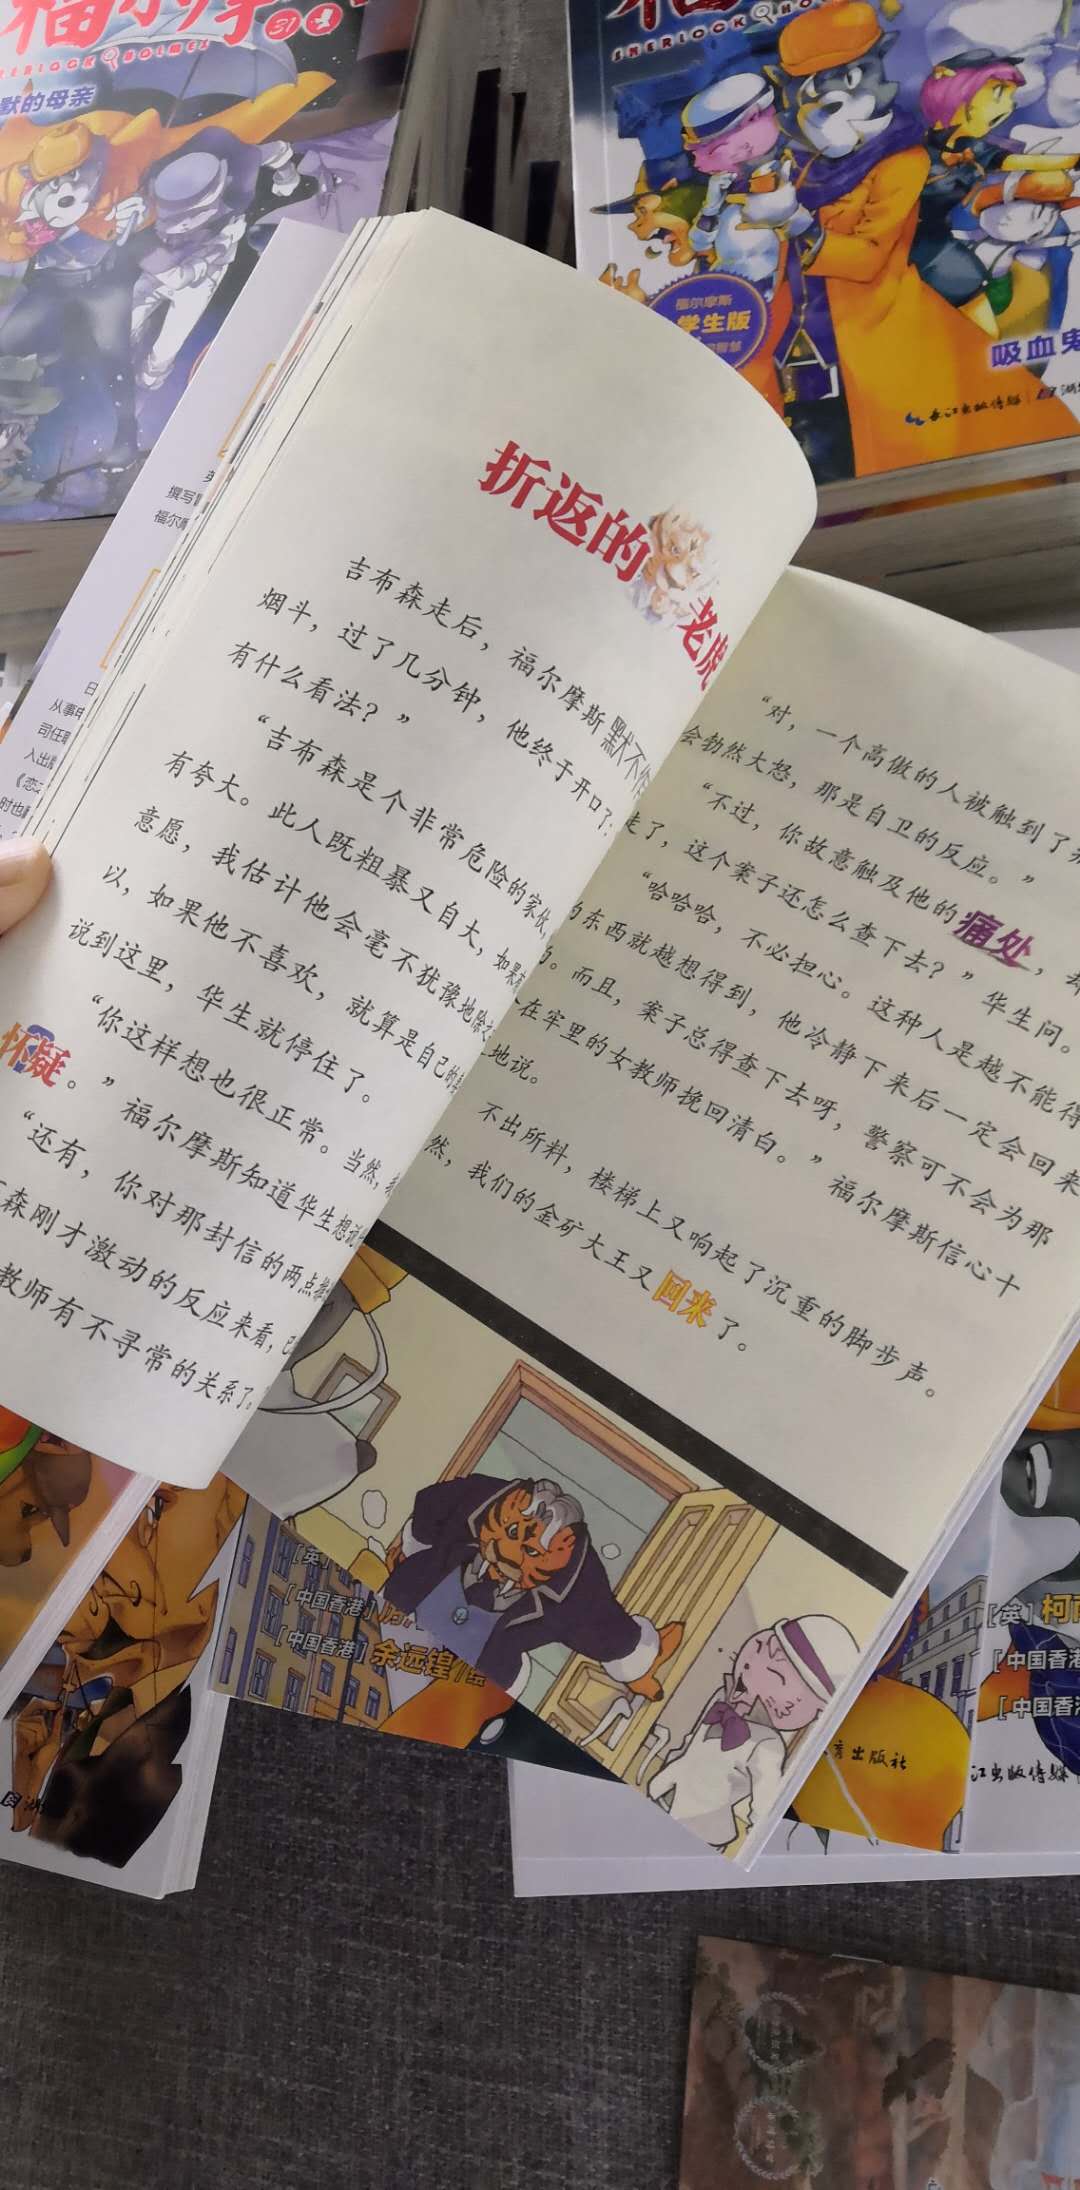 福尔摩
31
SHERLOCK HOLMES
默的母亲
SHERLOCK HO
福尔摩斯
学生版
吸血鬼
长江出版传媒
撰写
福尔摩
从事
司任
入出版
时也
折返的
老虎
吉布森走后，福尔摩斯默不作
烟斗，过了几分钟，他终于开口了：
有什么看法？”
“吉布森是个非常危险的家伙，
有夸大。此人既粗暴又自大，如果
意愿，我估计他会毫不犹豫地除
以，如果他不喜欢，就算是自己的
说到这里，华生就停住了。
“你这样想也很正常。当然，
怀疑。”福尔摩斯知道华生想说
“还有，你对那封信的两点
森刚才激动的反应来看，已
教师有不寻常的关系了。
“对，一个高傲的人被触到了
会勃然大怒，那是自卫的反应。”
“不过，你故意触及他的痛处，
走了，这个案子还怎么查下去？”华生问。
“哈哈哈，不必担心。这种人是越不能得
的东西就越想得到，他冷静下来后一定会回来
的。而且，案子总得查下去呀，警察可不会为那
在牢里的女教师挽回清白。”福尔摩斯信心十
地说。
不出所料，楼梯上又响起了沉重的脚步声。
然，我们的金矿大王又回来了。
[英]
[中国香港]
[中国香港] 余远锽 绘
[英] 柯南
[中国香港
[中国香港
育出版社
江出版传媒